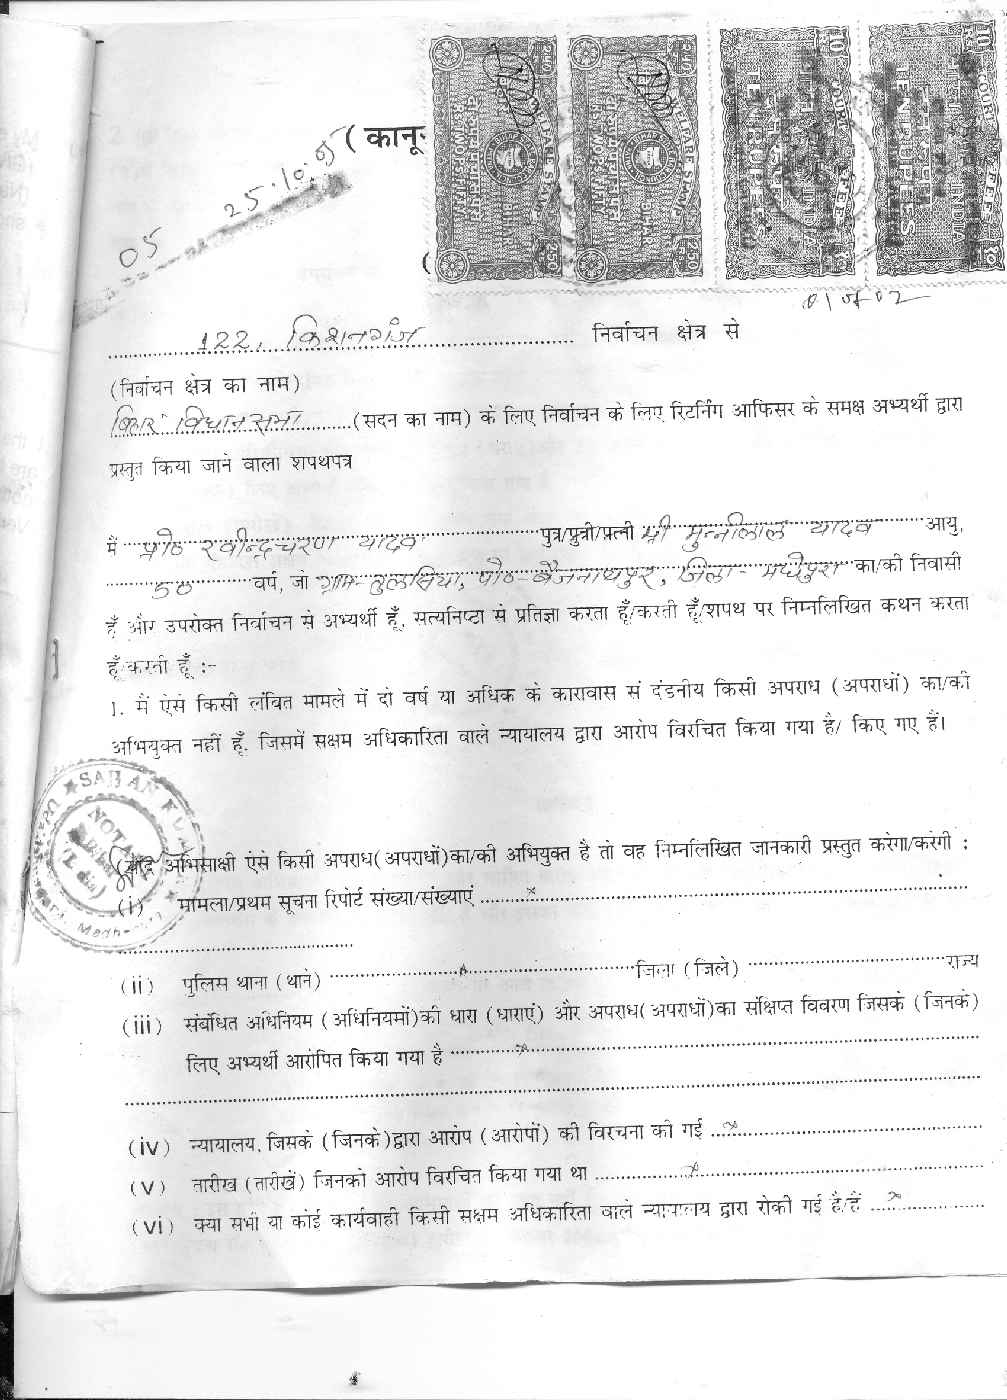 (कानू
05 25.10.05
WELFARE STAMP
BIHAR
250
WELFARE STAMP
BIHAR
250
10
COURT FEE
INDIA
TEN RUPEES
10
COURT FEE
INDIA
TEN RUPEES
(
01 of 02
122, किशनगंज निर्वाचन क्षेत्र से
(निर्वाचन क्षेत्र का नाम)
बिहार विधान सभा (सदन का नाम) के लिए निर्वाचन के लिए रिटर्निंग आफिसर के समक्ष अभ्यर्थी द्वारा
प्रस्तुत किया जाने वाला शपथपत्र
मैं प्रो० रवीन्द्र चरण यादव पुत्र/पुत्री/पत्नी श्री मुन्नीलाल यादव आयु,
50 वर्ष, जो ग्राम-तुलसिया, पो०-बैजनाथपुर, जिला-मधेपुरा का/की निवासी
हूँ और उपरोक्त निर्वाचन से अभ्यर्थी हूँ, सत्यनिष्टा से प्रतिज्ञा करता हूँ/करती हूँ/शपथ पर निम्नलिखित कथन करता
हूँ/करती हूँ :-
1. मैं ऐसे किसी लंवित मामले में दो वर्ष या अधिक के कारावास सं दंडनीय किसी अपराध (अपराधों) का/की
अभियुक्त नहीं हूँ, जिसमें सक्षम अधिकारिता वाले न्यायालय द्वारा आरोप विरचित किया गया है/ किए गए हैं।
SABAN
NOTA
Madh
(यदि अभिसाक्षी ऐसे किसी अपराध(अपराधों)का/की अभियुक्त है तो वह निम्नलिखित जानकारी प्रस्तुत करेगा/करेगी :
(i) मामला/प्रथम सूचना रिपोर्ट संख्या/संख्याएं x
(ii) पुलिस थाना (थाने) x जिला (जिले) राज्य
(iii) संबंधित अधिनियम (अधिनियमों)की धारा (धाराएं) और अपराध(अपराधों)का संक्षिप्त विवरण जिसके (जिनके)
लिए अभ्यर्थी आरोपित किया गया है x
(iv) न्यायालय, जिसके (जिनके)द्वारा आरोप (आरोपों) की विरचना की गई x
(v) तारीख (तारीखें) जिनको आरोप विरचित किया गया था x
(vi) क्या सभी या कोई कार्यवाही किसी सक्षम अधिकारिता वाले न्यायालय द्वारा रोकी गई है/हैं x